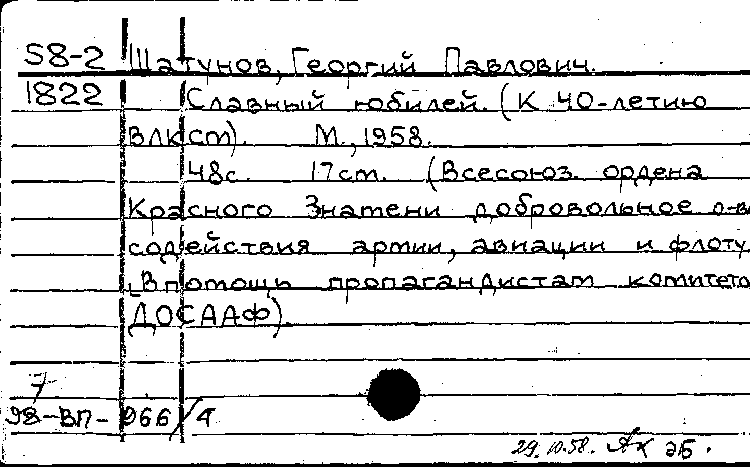 58-2 Шатунов, Георгий Павлович.
1822 Славный юбилей. (К 40-летию
ВЛКСМ). М., 1958.
48с. 17см. (Всесоюз. ордена
Красного Знамени добровольное о-в
содействия армии, авиации и флоту.
„В помощь пропагандистам комитето
ДОСААФ).
7
98-ВП-066/4
29.10.58.